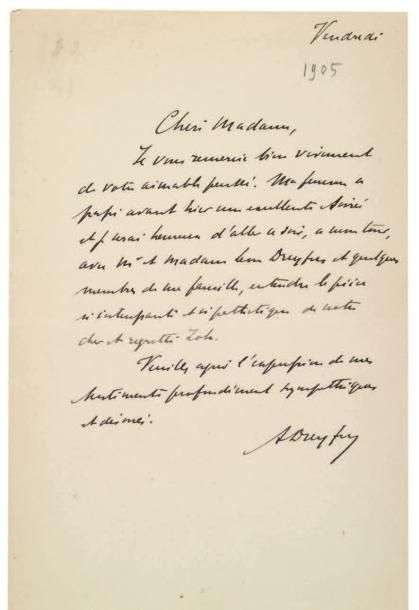 Vendredi
1905
Chère Madame,
Je vous remercie bien vivement
de votre aimable pensée. Ma femme a
passé avant hier une excellente soirée
et j'irai heureux d'aller ce soir, à mon tour,
avec Mr et Madame Léon Dreyfus et quelques
membres de ma famille, entendre la pièce
si intéressante et si pathétique de notre
cher et regretté Zola.
Veuillez agréer l'expression de mes
sentiments profondément sympathiques
et dévoués.
ADreyfus